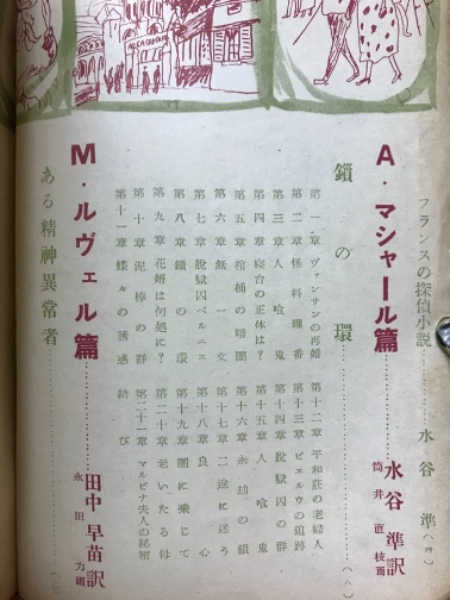 フランスの探偵小説……水谷準…(四)
A・マシャール篇……水谷準訳
筒井直枝画
鎖の環……(八)
第一章 ヴァンサンの再婚
第二章 怪料理番
第三章 人喰鬼
第四章 寝台の正体は?
第五章 棺桶の暗闇
第六章 無一文
第七章 脱獄囚ペルニエ
第八章 鎖の環
第九章 花婿は何処に?
第十章 泥棒の群
第十一章 蝶々の誘惑
第十二章 平和荘の老婦人
第十三章 ピエルウの追跡
第十四章 脱獄囚の群
第十五章 人喰鬼
第十六章 永劫の鎖
第十七章 二途に迷う
第十八章 良心
第十九章 闇に乗じて
第二十章 老いたる母
第二十一章 マルビナ夫人の秘密
結び
M・ルヴェル篇……田中早苗訳
永田力画
ある精神異常者……